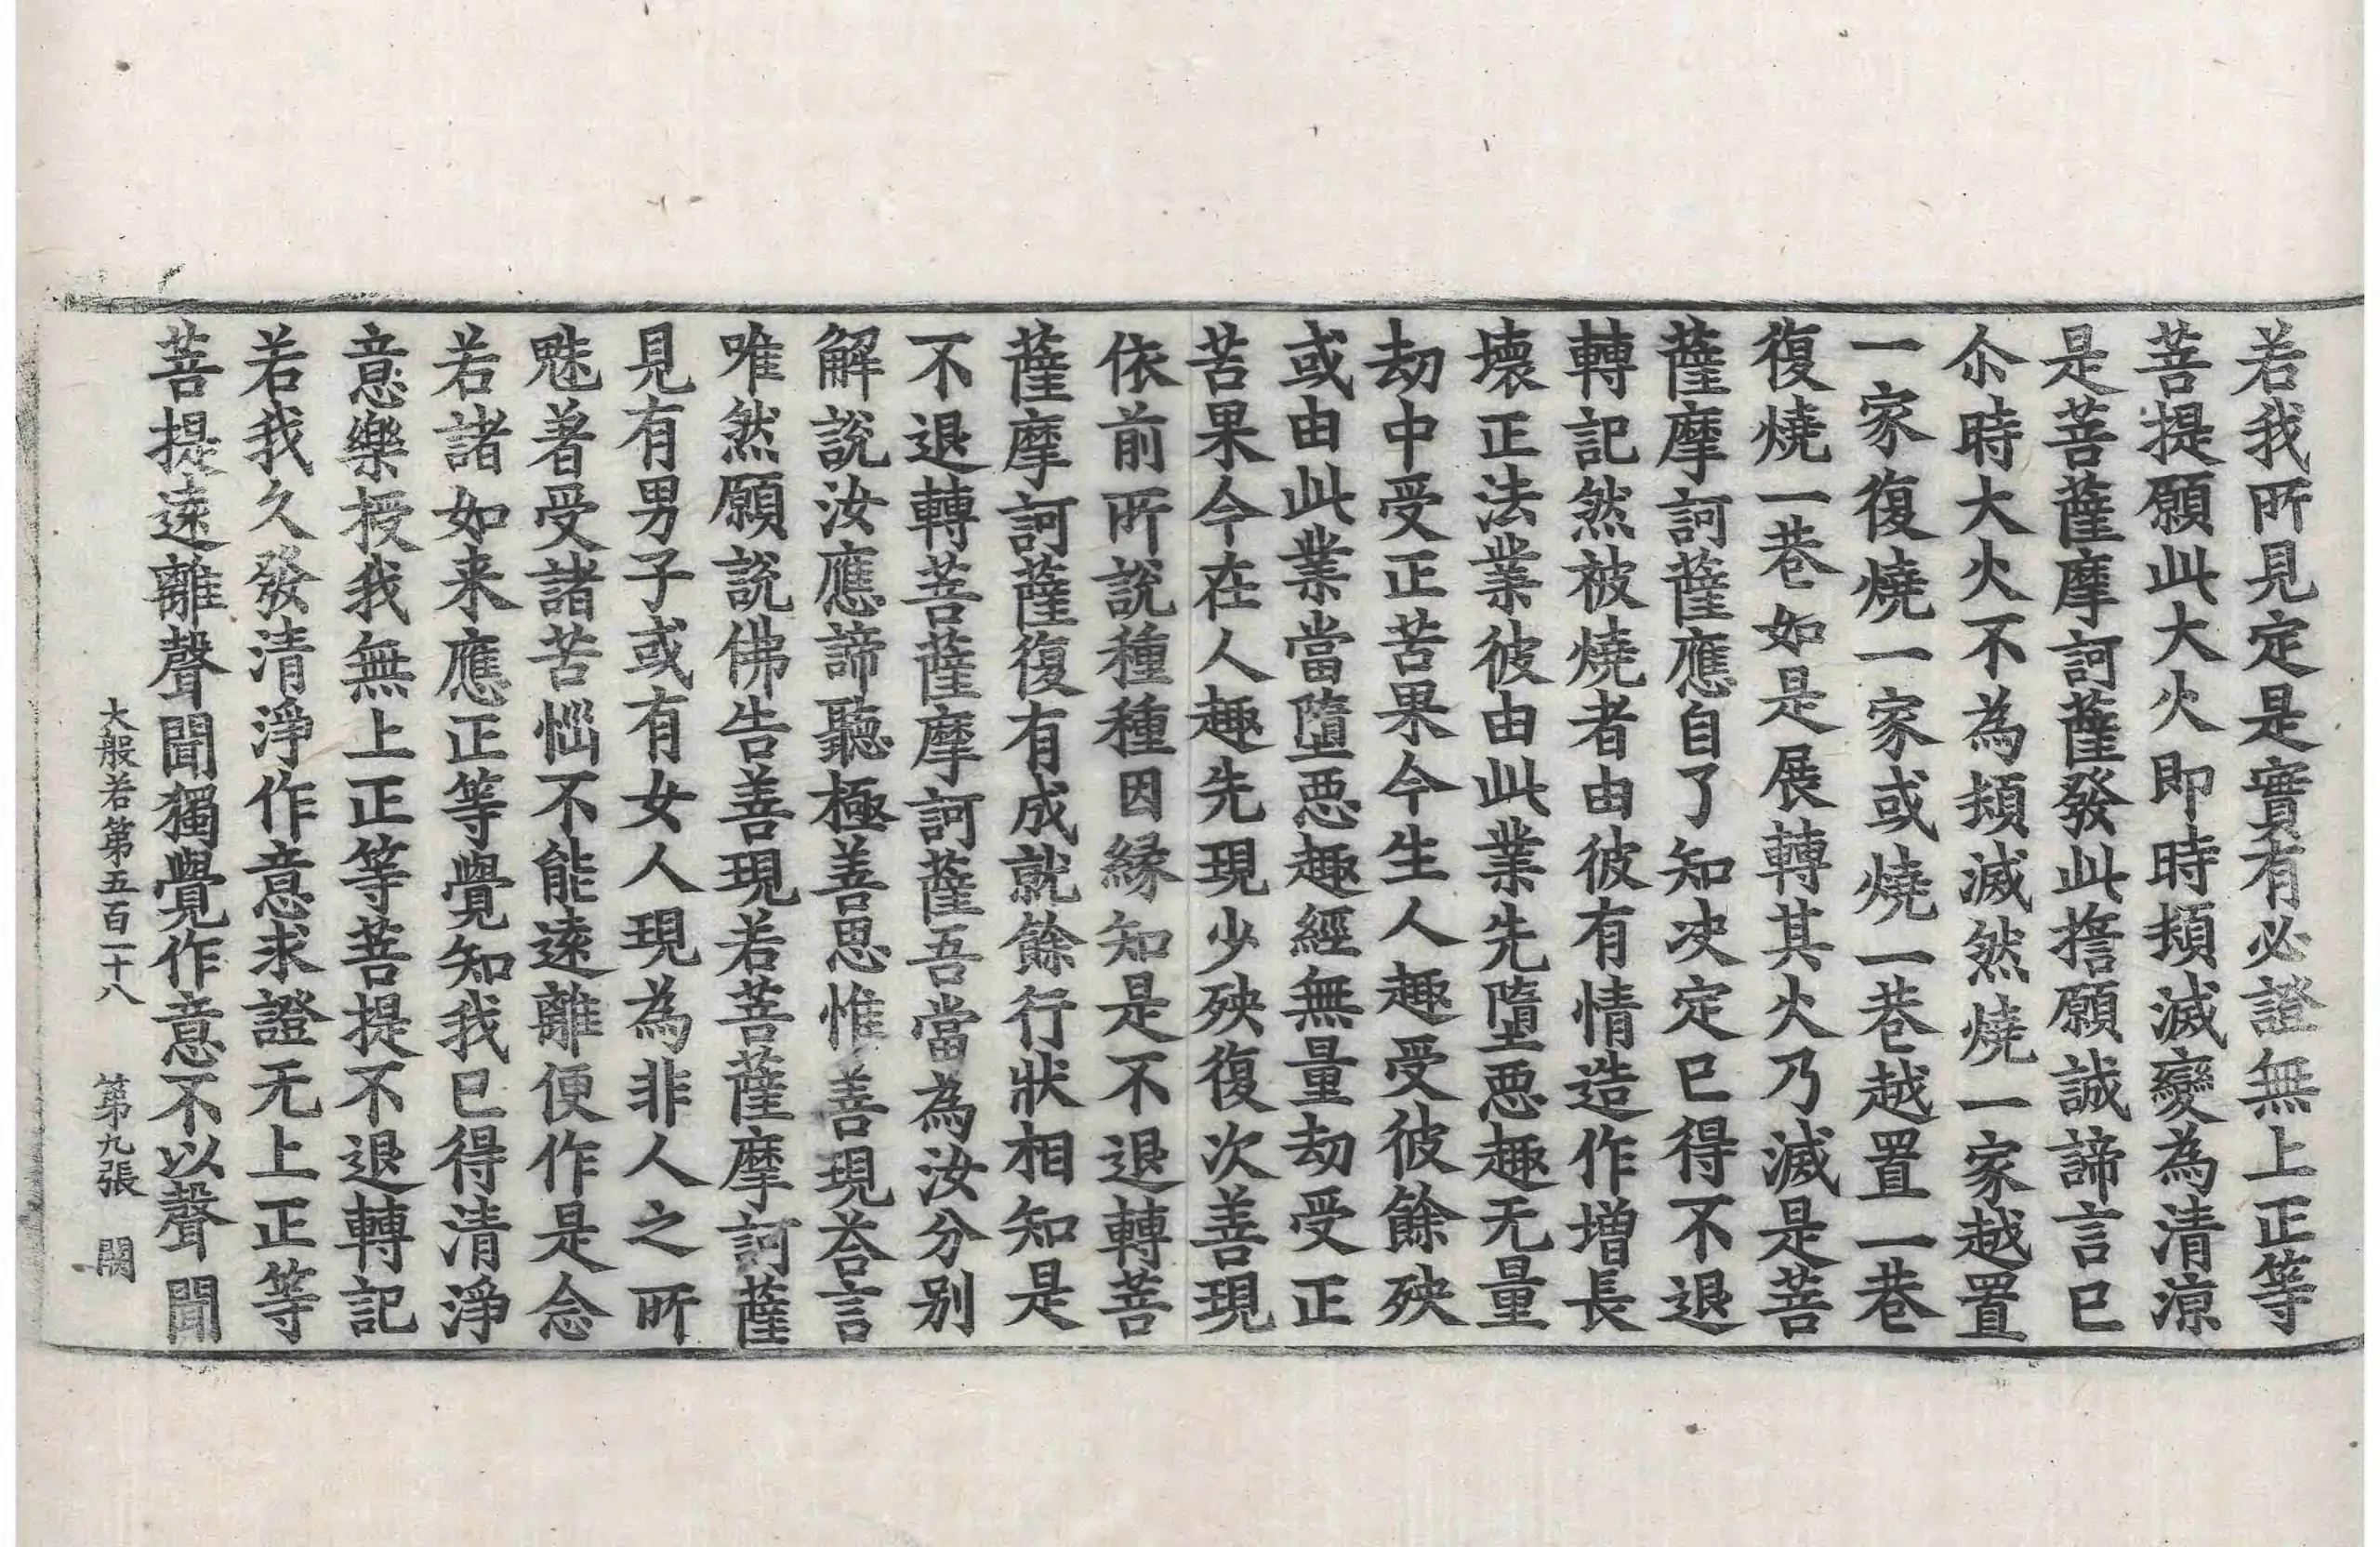 若我所見定是實有必證無上正等
菩提願此大火即時頓滅變為清涼
是菩薩摩訶薩發此擔願誠諦言已
尒時大火不為頓滅然燒一家越置
一家復燒一家或燒一巷越置一巷
復燒一巷如是展轉其火乃滅是菩
薩摩訶薩應自了知决定已得不退
轉記然被燒者由彼有情造作增長
壞正法業彼由此業先墮惡趣无量
劫中受正苦果今生人趣受彼餘殃
或由此業當墮惡趣經無量劫受正
苦果今在人趣先現少殃復次善現
依前所說種種因緣知是不退轉菩
薩摩訶薩復有成就餘行狀相知是
不退轉菩薩摩訶薩吾當為汝分別
解說汝應諦聽極善思惟善現荅言
唯然願說佛告善現若菩薩摩訶薩
見有男子或有女人現為非人之所
魅著受諸苦惱不能遠離便作是念
若諸如来應正等覺知我已得清淨
意樂授我無上正等菩提不退轉記
若我久發清淨作意求證无上正等
菩提遠離聲聞獨覺作意不以聲聞
大般若第五百一十八 第九張 闕